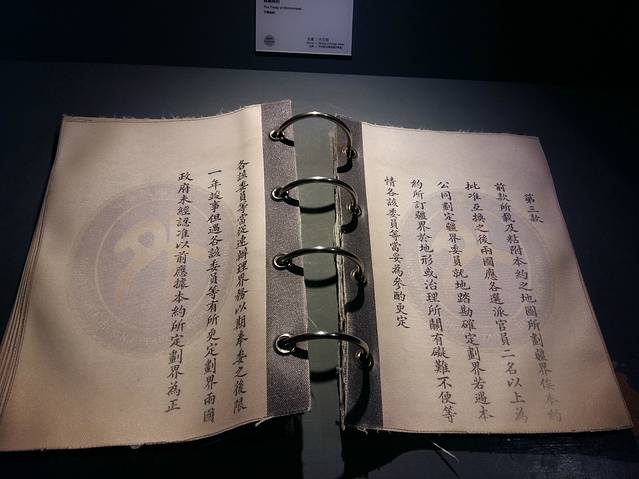 馬關條約
The Treaty of Shimonoseki
第三款
前款所載及粘附本約之地圖所劃疆界俟本約
批准互換之後兩國應各選派官員二名以上為
公同劃定疆界委員就地踏勘確定劃界若遇本
約所訂疆界於地形或治理所關有礙難不便等
情各該委員等當妥為參酌更定
各該委員等當從速辦理界務以期奉委之後限
一年竣事但遇各該委員等有所更定劃界兩國
政府未經認准以前應據本約所定劃界為正